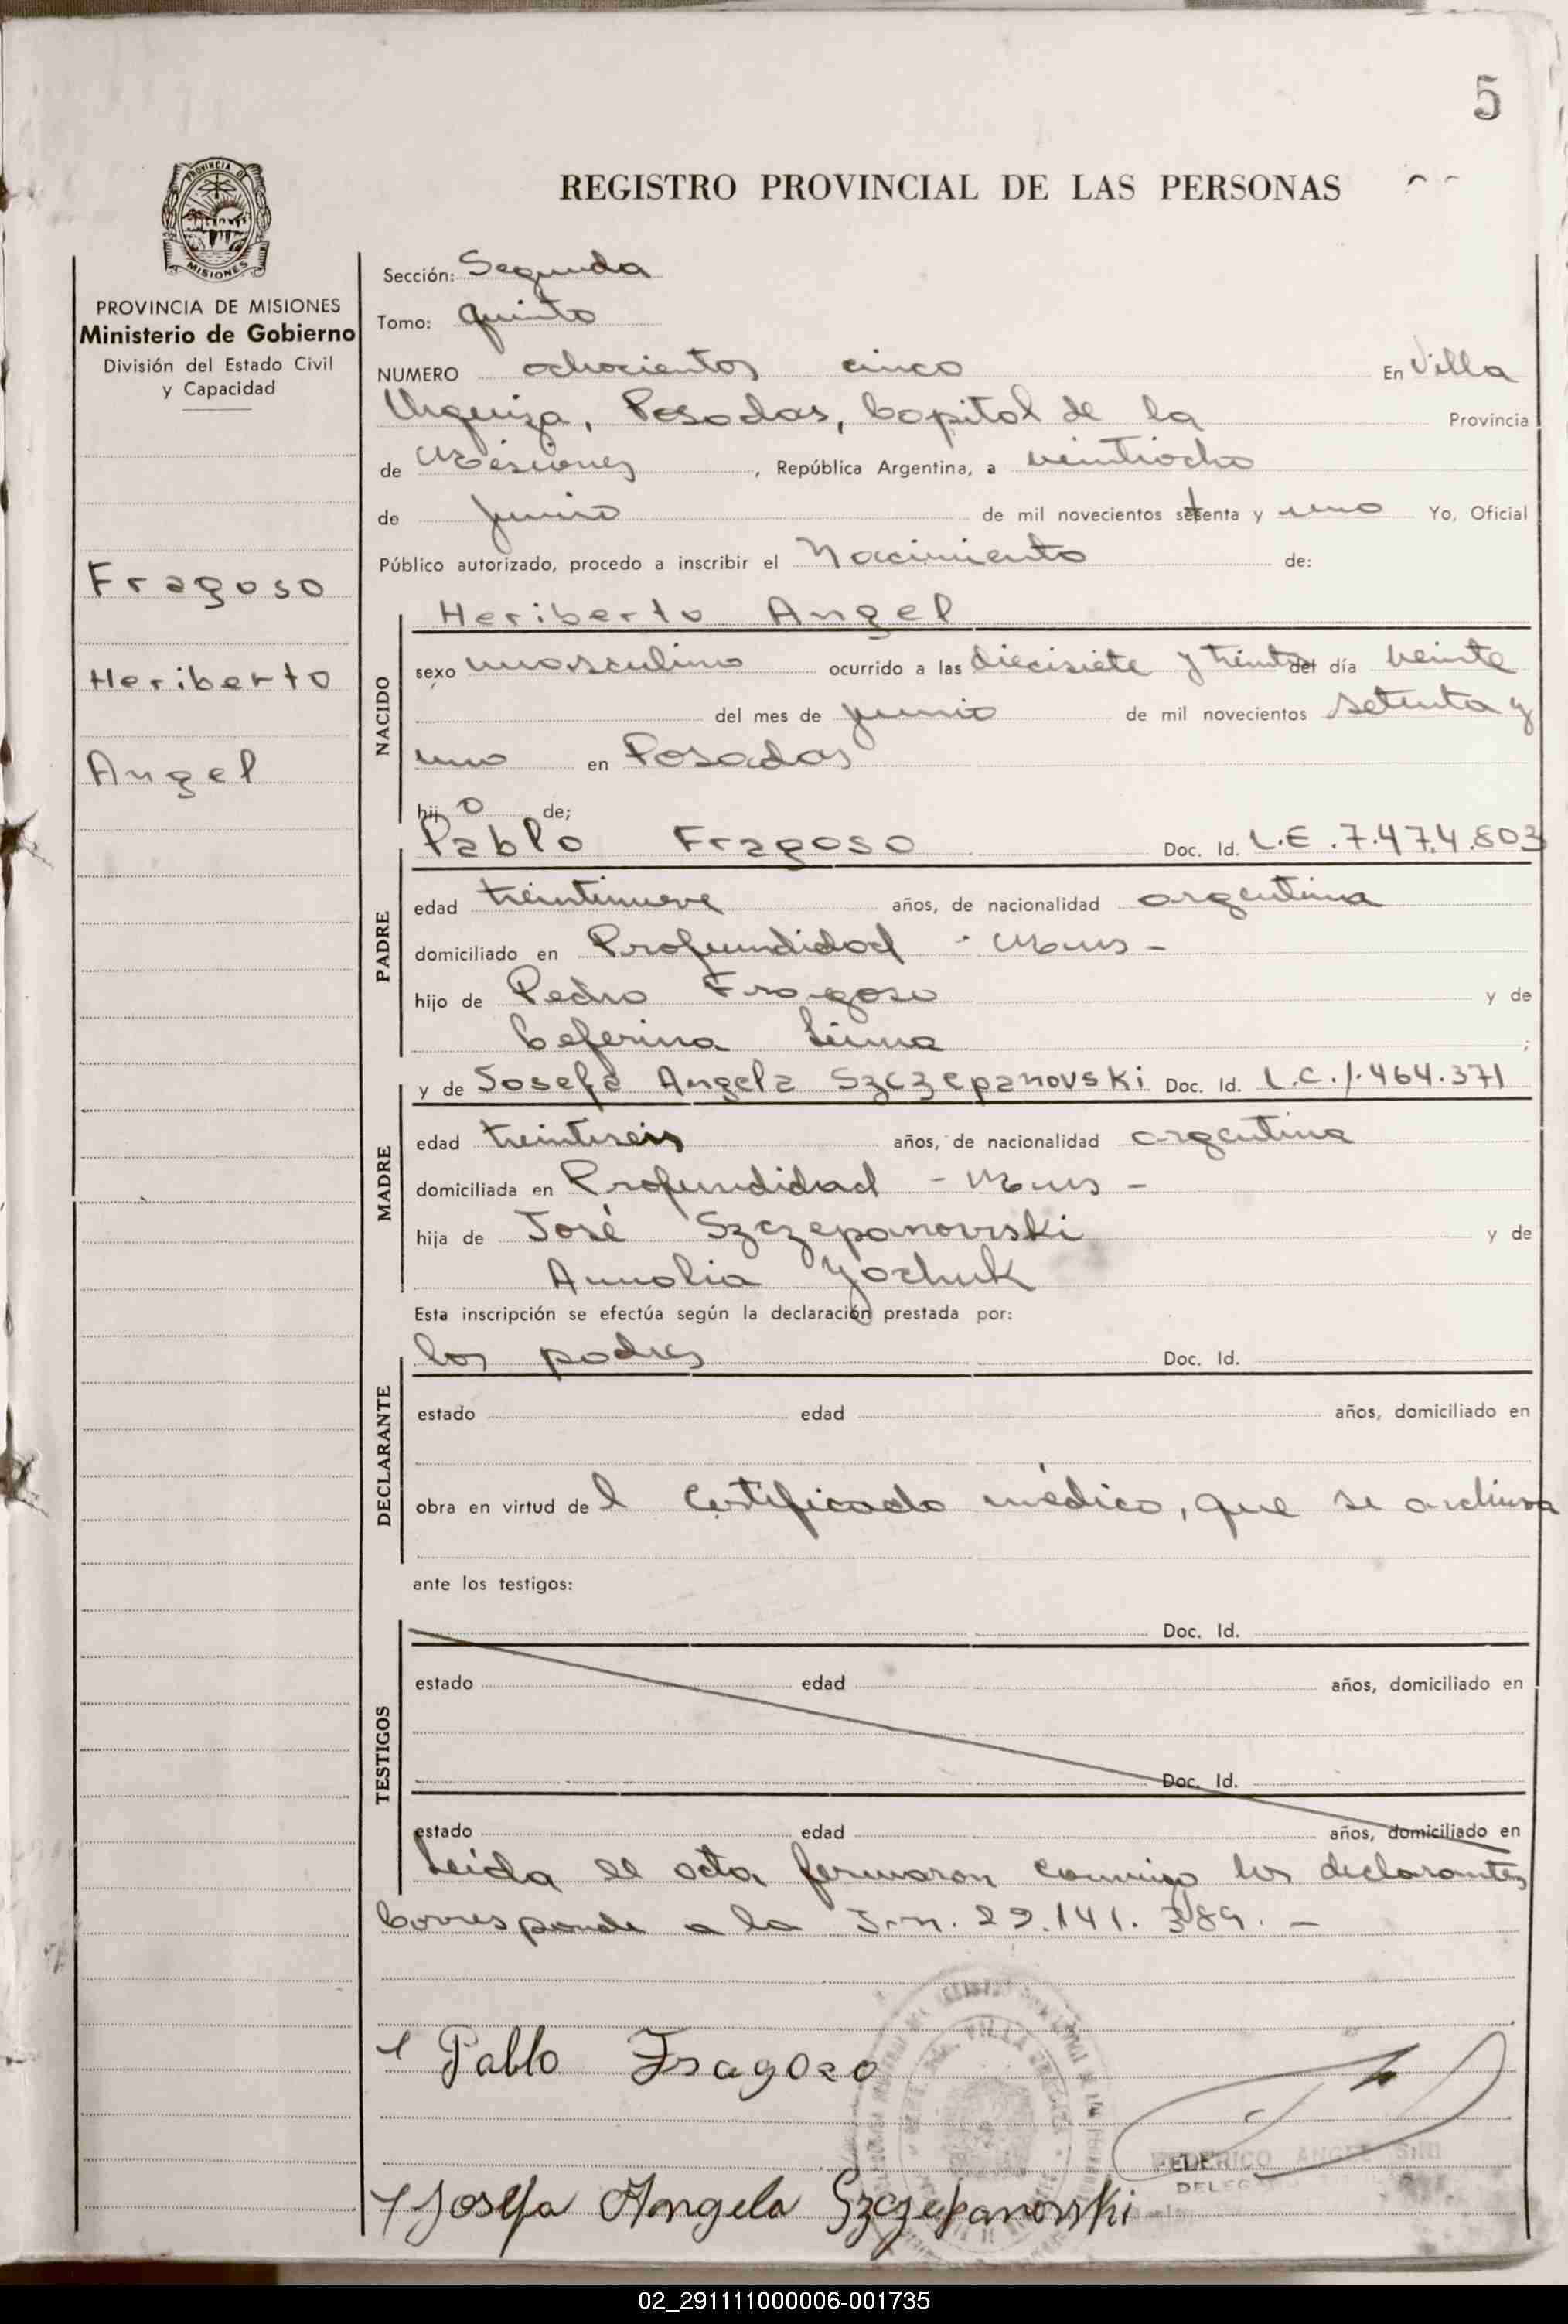 5
REGISTRO PROVINCIAL DE LAS PERSONAS
PROVINCIA DE
MISIONES
PROVINCIA DE MISIONES
Ministerio de Gobierno
División del Estado Civil
y Capacidad
Fragoso
Heriberto
Angel
Sección: Segunda
Tomo: quinto
NUMERO ochocientos cinco En Villa
Urquiza, Posadas, Capital de la Provincia
de Misiones, República Argentina, a veintiocho
de junio de mil novecientos setenta y uno Yo, Oficial
Público autorizado, procedo a inscribir el Nacimiento de:
NACIDO
Heriberto Angel
sexo masculino ocurrido a las diecisiete y treinta del día veinte
del mes de junio de mil novecientos setenta y
uno en Posadas
hij o de;
PADRE
Pablo Fragoso Doc. Id. L.E. 7.474.803
edad treintinueve años, de nacionalidad argentina
domiciliado en Profundidad - Mnes -
hijo de Pedro Fragoso y de
Ceferina Lima ;
MADRE
y de Josefa Angela Szczepanovski Doc. Id. L.C. 1.464.371
edad treintiseis años, de nacionalidad argentina
domiciliada en Profundidad - Mnes -
hija de José Szczepanovski y de
Amalia Yachuk
Esta inscripción se efectúa según la declaración prestada por:
DECLARANTE
los padres Doc. Id.
estado edad años, domiciliado en
obra en virtud de l certificado médico, que se archiva
ante los testigos:
TESTIGOS
Doc. Id.
estado edad años, domiciliado en
Doc. Id.
estado edad años, domiciliado en
Leída el acta firmaron conmigo los declarantes
Corresponde a la I.n. 22.141.389. -
Pablo Fragoso
VILLA URQUIZA
FEDERICO ANGEL
Josefa Angela Szczepanovski
02_291111000006-001735